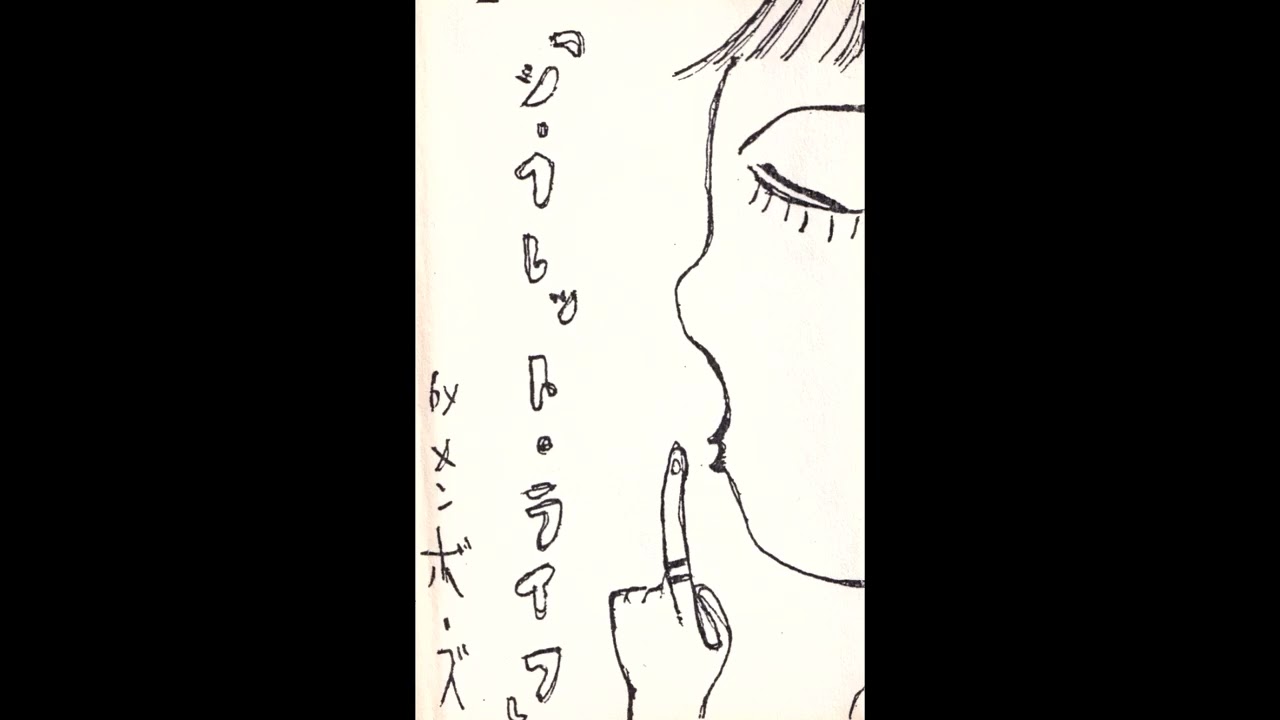 「シークレット・ライフ」
by メンボーズ